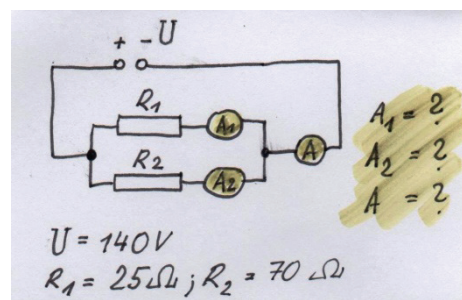 + - U
R1 A1
A
R2 A2
A1 = ?
A2 = ?
A = ?
U = 140V
R1 = 25Ω ; R2 = 70 Ω